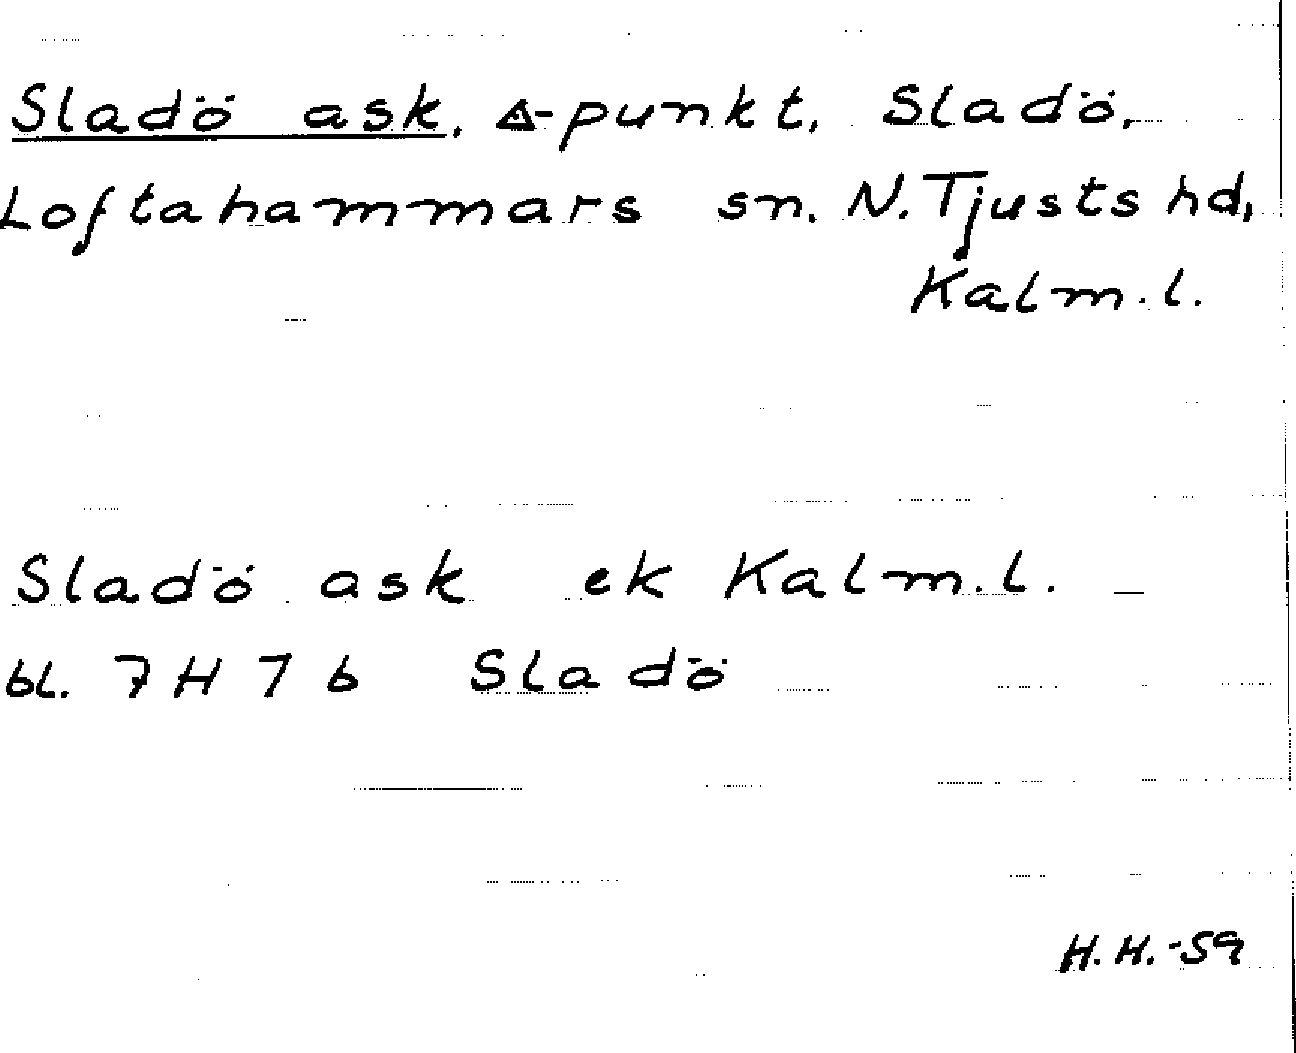 Sladö ask, △-punkt, Sladö,
Loftahammars sn. N. Tjusts hd,
Kalm.l.
Sladö ask ek Kalm.l. —
bl. 7H7b Sladö
H.H.-59